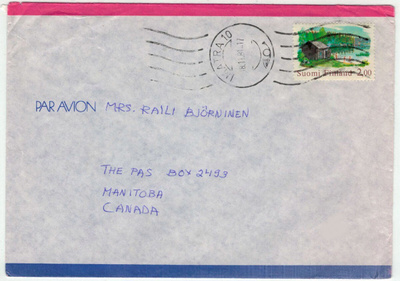 Suomi Finland 2,00
PAR AVION MRS. RAILI BJÖRNINEN
THE PAS BOX 2499
MANITOBA
CANADA